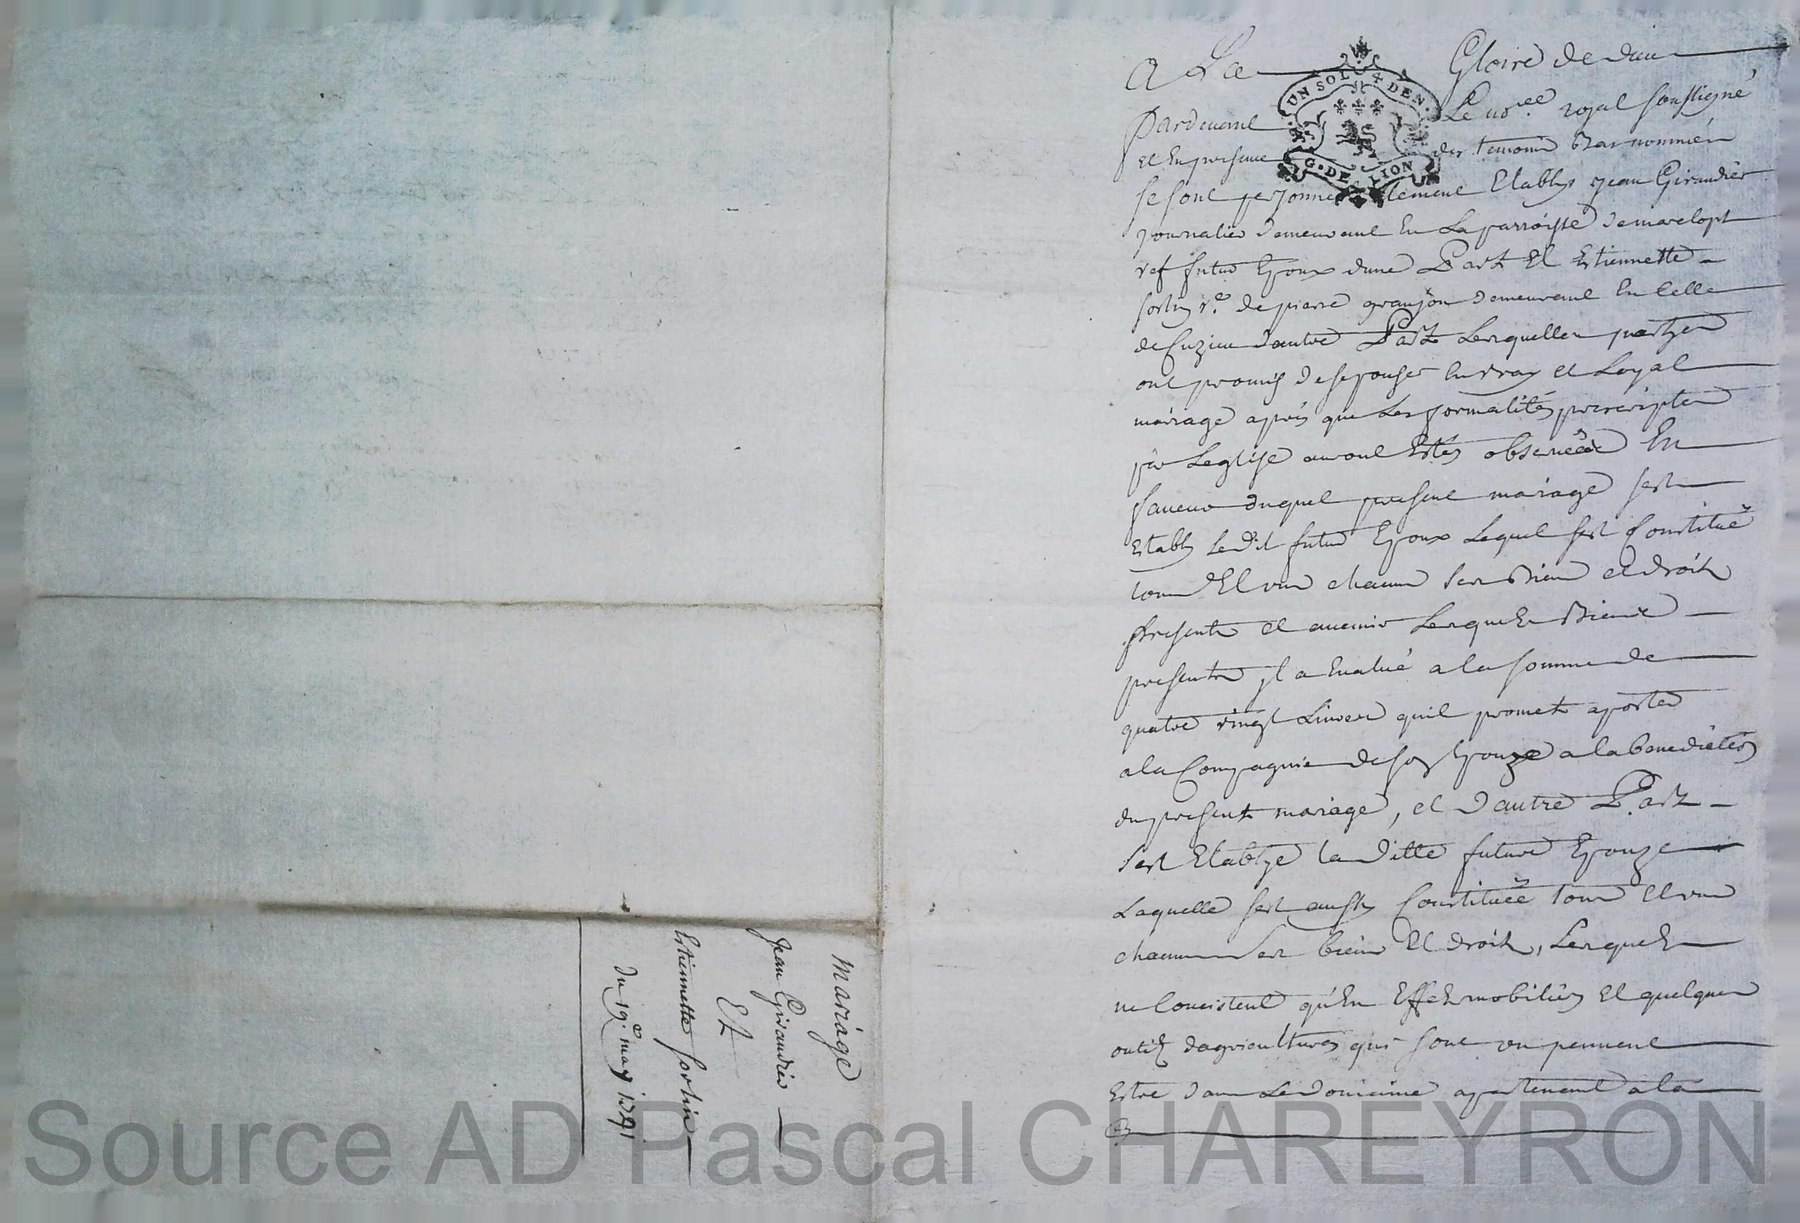 A La Gloire de dieu
UN SOL 4 DEN.
G. DE LION
Pardevant Le no.re royal soussigné
et En presence des temoins bas nommés
se sont personnellement Etablys jean Giraudier
journalier demeurant En La parroisse de marclopt
futur Epoux dune Part Et Estiennette
fortin v.e de pierre granjon demeurant En Celle
de Cuzieu dautre Part Lesquelles partyes
ont promis de sepouser En vray et Loyal
mariage aprés que Les formalités prescriptes
par Leglise auront Estés observéés En
faveur duquel present mariage sest
Establÿ Ledit futur Epoux Lequel sest Constitué
tous Et un chacun ses Biens et droits
presents et avenir Lesquels Biens
presents jl a Evalué a la somme de
quatre vingt Livres quil promet aporter
a la Compagnie de son Epouze a la benediction
du present mariage, et dautre Part
sest Etablye la ditte future Epouze
Laquelle sest aussy Constituéé tous Et un
chacun ses biens Et droits, Lesquels
ne Concistent qu'En Effets mobiliers Et quelques
outils dagricultures qui sont ou peuvent
Estre dans Le domaine apartenant a la
Mariage
Jean Giraudier
Et
Estiennette fortin
du 19.e may 1791
Source AD Pascal CHAREYRON